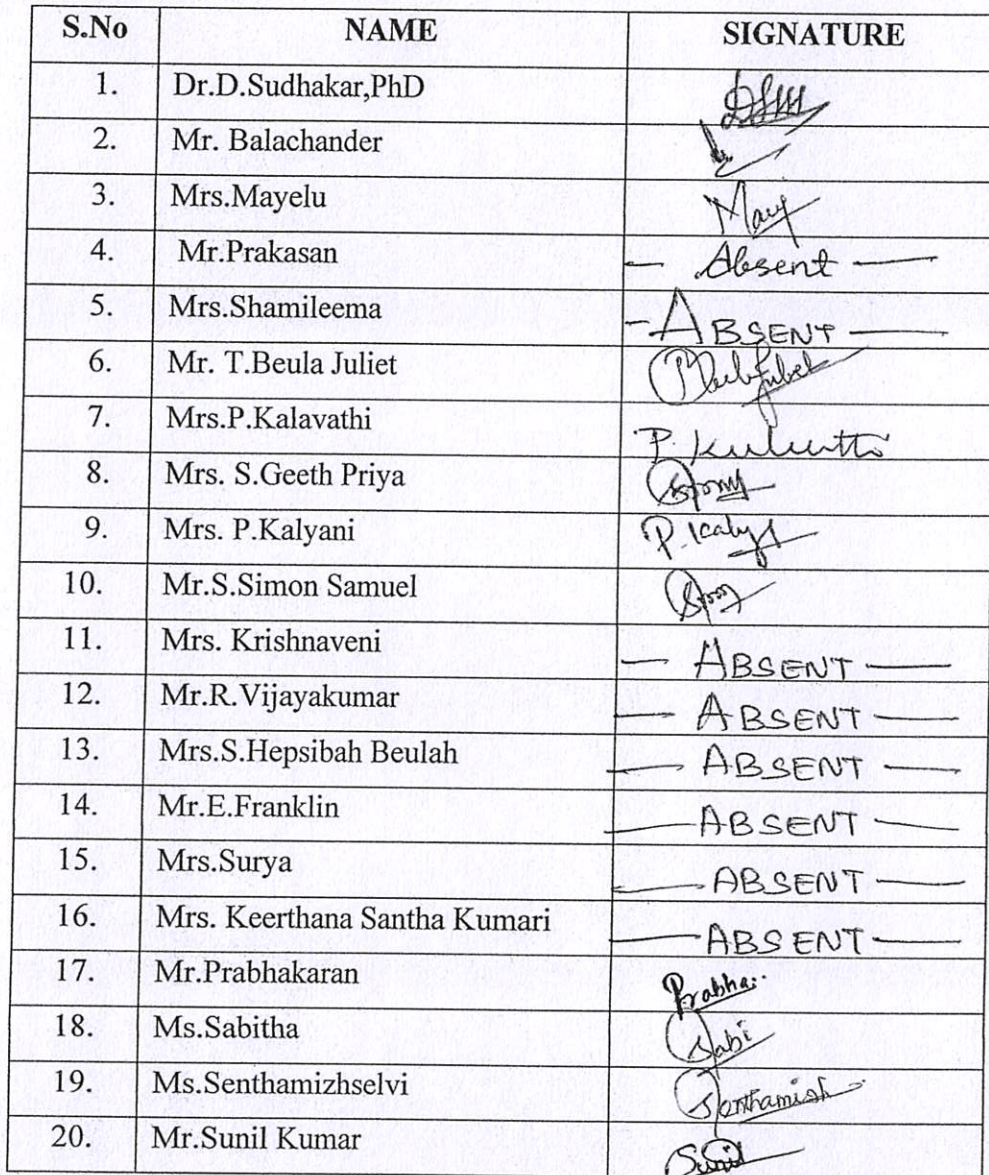 S.No NAME SIGNATURE
1. Dr.D.Sudhakar,PhD
2. Mr. Balachander
3. Mrs.Mayelu May
4. Mr.Prakasan Absent
5. Mrs.Shamileema ABSENT
6. Mr. T.Beula Juliet
7. Mrs.P.Kalavathi P.
8. Mrs. S.Geeth Priya
9. Mrs. P.Kalyani P.
10. Mr.S.Simon Samuel
11. Mrs. Krishnaveni ABSENT
12. Mr.R.Vijayakumar ABSENT
13. Mrs.S.Hepsibah Beulah ABSENT
14. Mr.E.Franklin ABSENT
15. Mrs.Surya ABSENT
16. Mrs. Keerthana Santha Kumari ABSENT
17. Mr.Prabhakaran Prabha.
18. Ms.Sabitha Sabi
19. Ms.Senthamizhselvi
20. Mr.Sunil Kumar Sunil